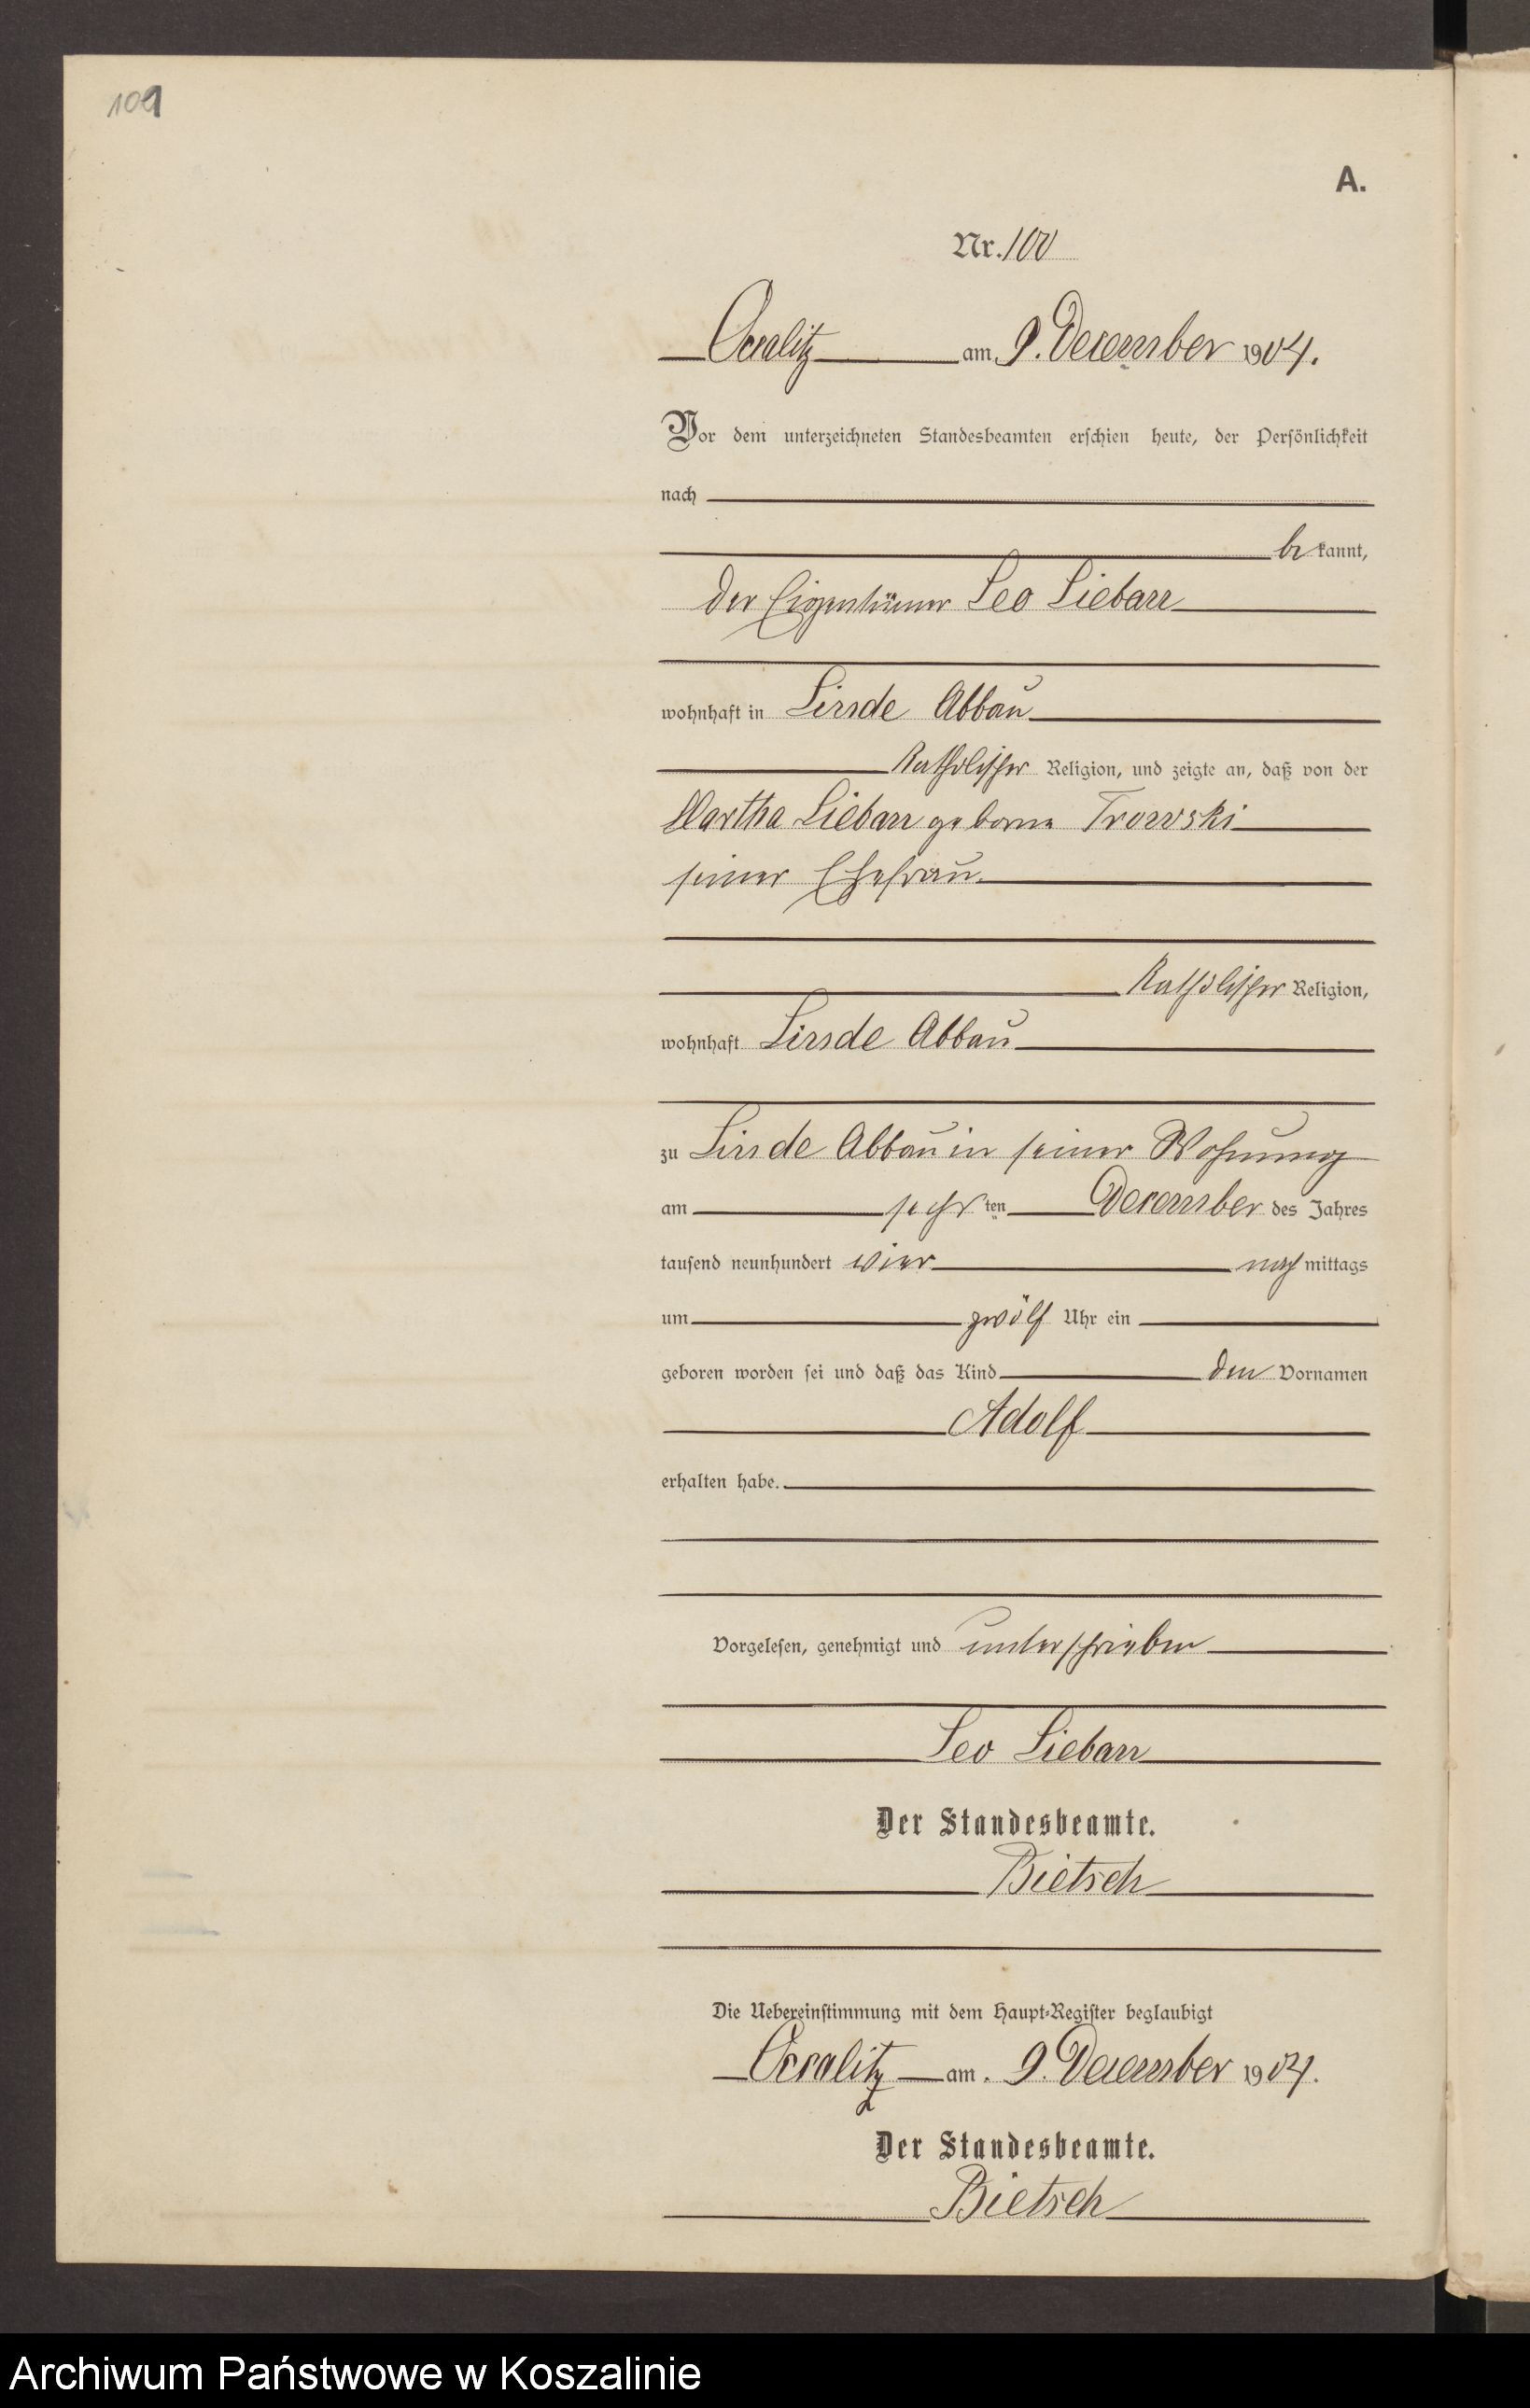 109
A.
Nr. 100
am 9. December 1904.
Vor dem unterzeichneten Standesbeamten erschien heute, der Persönlichkeit
nach
be kannt,
der Eigenthümer Leo
wohnhaft in Linde Abbau
Katholischer Religion, und zeigte an, daß von der
Martha geborne
seiner Ehefrau
Katholischer Religion,
wohnhaft Linde Abbau
zu Linde Abbau in seiner Wohnung
am sechs ten December des Jahres
tausend neunhundert vier nach mittags
um zwölf Uhr ein
geboren worden sei und daß das Kind den Vornamen
Adolf
erhalten habe.
Vorgelesen, genehmigt und unterschrieben
Leo
Der Standesbeamte.
Bietsch
Die Uebereinstimmung mit dem Haupt-Register beglaubigt
am 9. December 1904.
Der Standesbeamte.
Bietsch
Archiwum Państwowe w Koszalinie